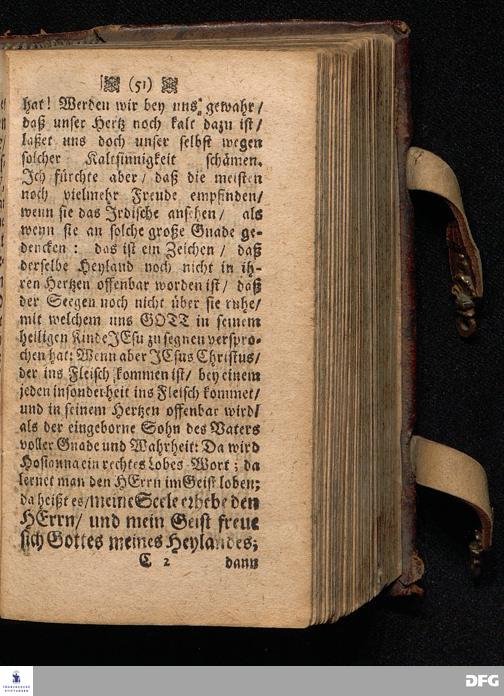 (51)
hat! Werden wir bey uns gewahr/
daß unser Hertz noch kalt dazu ist/
laßet uns doch unser selbst wegen
solcher Kaltsinnigkeit schämen.
Ich fürchte aber/ daß die meisten
noch vielmehr Freude empfinden/
wenn sie das Irdische ansehen/ als
wenn sie an solche große Gnade ge-
dencken: das ist ein Zeichen/ daß
derselbe Heyland noch nicht in ih-
ren Hertzen offenbar worden ist/ daß
der Seegen noch nicht über sie ruhe/
mit welchem uns GOTT in seinem
heiligen Kinde JEsu zu segnen verspro-
chen hat: Wenn aber JEsus Christus/
der ins Fleisch kommen ist/ bey einem
jeden insonderheit ins Fleisch kommet/
und in seinem Hertzen offenbar wird/
als der eingeborne Sohn des Vaters
voller Gnade und Wahrheit: Da wird
Hosianna ein rechtes Lobes-Wort; da
lernet man den HErrn im Geist loben;
da heißt es/ meine Seele erhebe den
HErrn/ und mein Geist freue
sich Gottes meines Heylandes;
C 2 dann
DFG